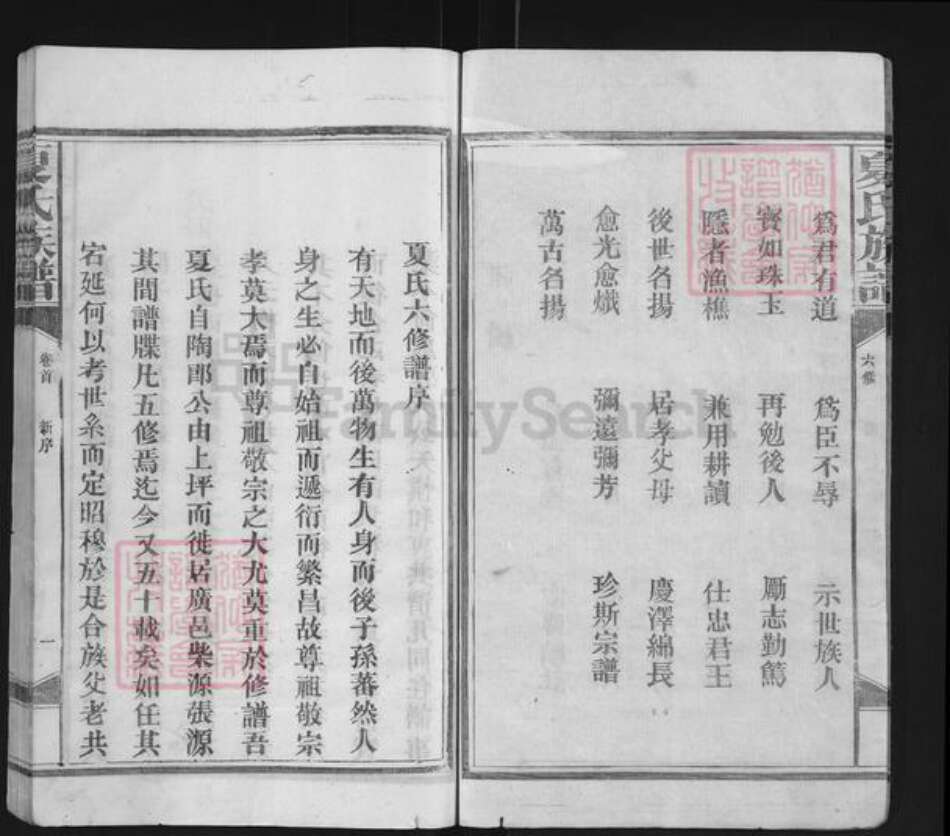 夏氏族譜
六修
爲君有道 爲臣不辱 示世族人
寳如珠玉 再勉後人 勵志勤篤
隱者漁樵 兼用耕讀 仕忠君王
後世名揚 居孝父母 慶澤綿長
愈光愈熾 彌遠彌芳 珍斯宗譜
萬古名揚
夏氏六修譜序
有天地而後萬物生有人身而後子孫蕃然人
身之生必自始祖而遞衍而繁昌故尊祖敬宗
孝莫大焉而尊祖敬宗之大尤莫重於修譜吾
夏氏自陶郎公由上坪而徙居廣邑柴源張源
其間譜牒凡五修焉迄今又五十載矣如任其
宕延何以考世系而定昭穆於是合族父老共
夏氏族譜
卷首 新序
一
FamilySearch